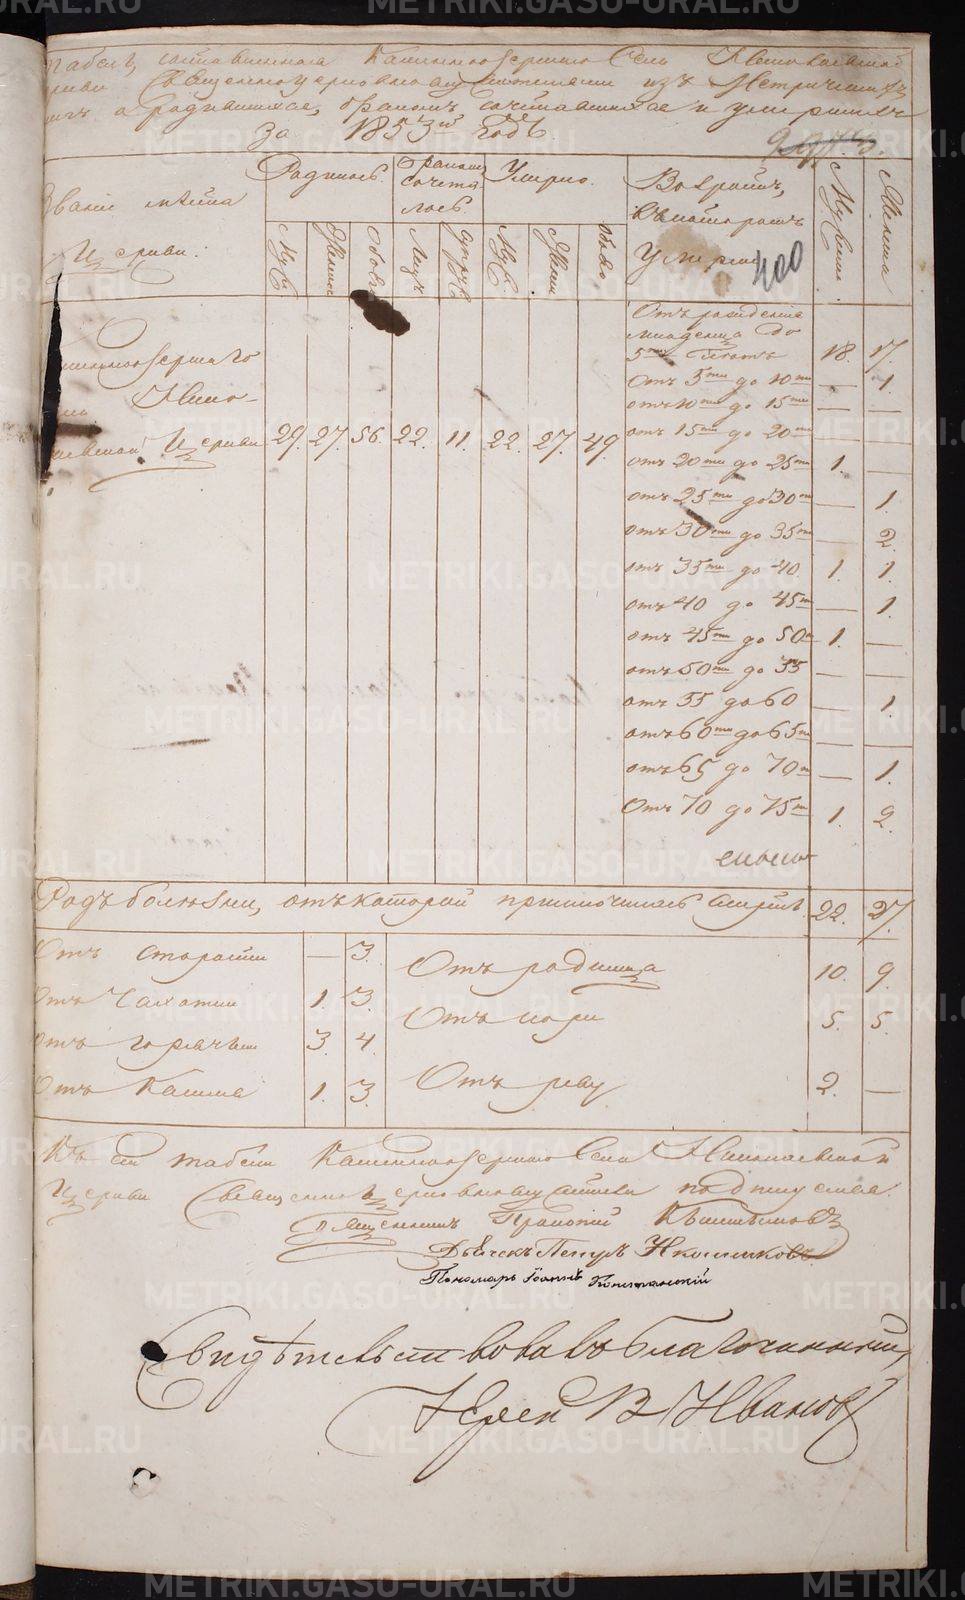 Табель, составленная Каменноозерного Села Николаевской
Церкви Священноцерковнослужителями изъ Метрическихъ
книгъ о родившихся, бракомъ сочетавшихся и умершихъ
За 1853й Годъ.
400
Званіе мѣста
и Церкви.
Родилось.
Бракомъ сочеталось.
Умерло.
Возрастъ, въ которомъ Умерло
Мужеска
Женска
Муж.
Женск.
Обоего
Лицъ
Супруж.
Муж.
Женск.
Обоего
Каменноозерного
Села Нико-
лаевской Церкви
29. 27. 56. 22. 11. 22. 27. 49.
Отъ рожденія
младенца до
5ти Лѣтъ 18. 17.
Отъ 5ти до 10ти — 1.
отъ 10ти до 15ти — —
отъ 15ти до 20ти — —
отъ 20ти до 25ти 1. —
отъ 25ти до 30ти — 1.
отъ 30ти до 35ти — 2.
отъ 35ти до 40. 1. 1.
отъ 40 до 45ти — 1.
отъ 45ти до 50ти 1. —
отъ 50ти до 55 — —
отъ 55 до 60 — 1.
отъ 60ти до 65ти — —
отъ 65 до 70ти — 1.
Отъ 70 до 75ти 1. 2.
Родъ болѣзни, отъ которой приключилась смерть. 22. 27.
Отъ старости — 3.
Отъ родимца 10. 9.
Отъ Чахотки 1. 3.
Отъ кори 5. 5.
Отъ горячки 3. 4.
Отъ Кашля 1. 3.
Отъ реву 2. —
Къ сей табели Каменноозерного Села Николаевской
Церкви Священноцерковнослужители подписуемся.
Священникъ
Дьячекъ Петръ
Пономарь Іоаннъ
Свидѣтельствовалъ Благочинный,
Іерей В Ивановъ
METRIKI.GASO-URAL.RU